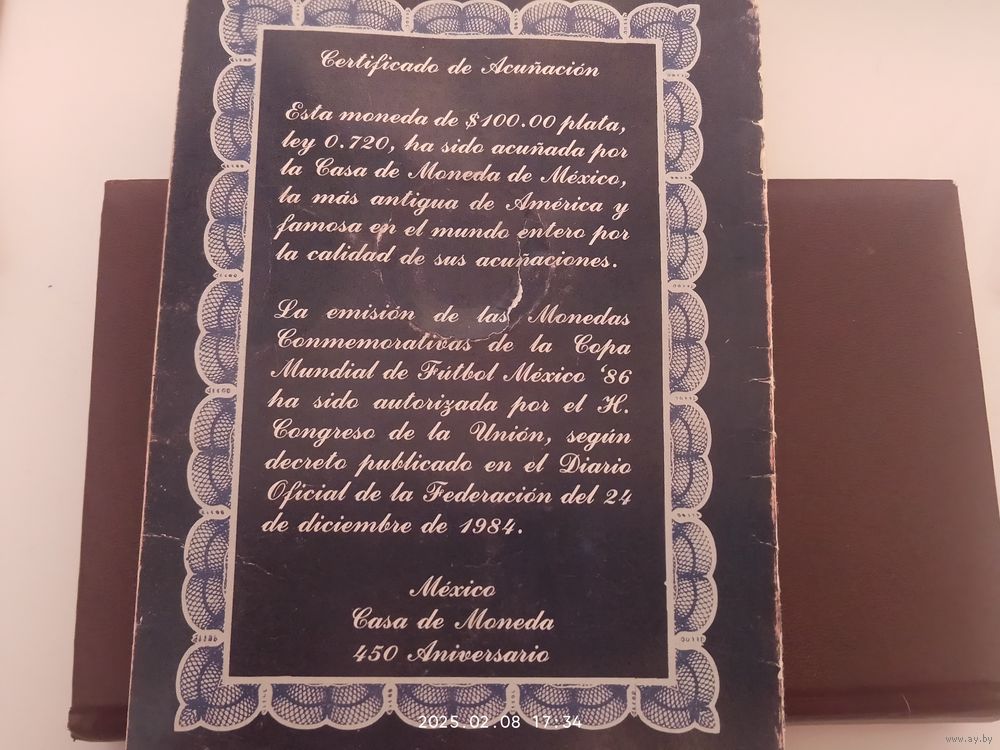 Certificado de Acuñación
Esta moneda de $100.00 plata,
ley 0.720, ha sido acuñada por
la Casa de Moneda de México,
la más antigua de América y
famosa en el mundo entero por
la calidad de sus acuñaciones.
La emisión de las Monedas
Conmemorativas de la Copa
Mundial de Fútbol México '86
ha sido autorizada por el H.
Congreso de la Unión, según
decreto publicado en el Diario
Oficial de la Federación del 24
de diciembre de 1984.
México
Casa de Moneda
450 Aniversario
2025.02.08 17:34
www.ay.by